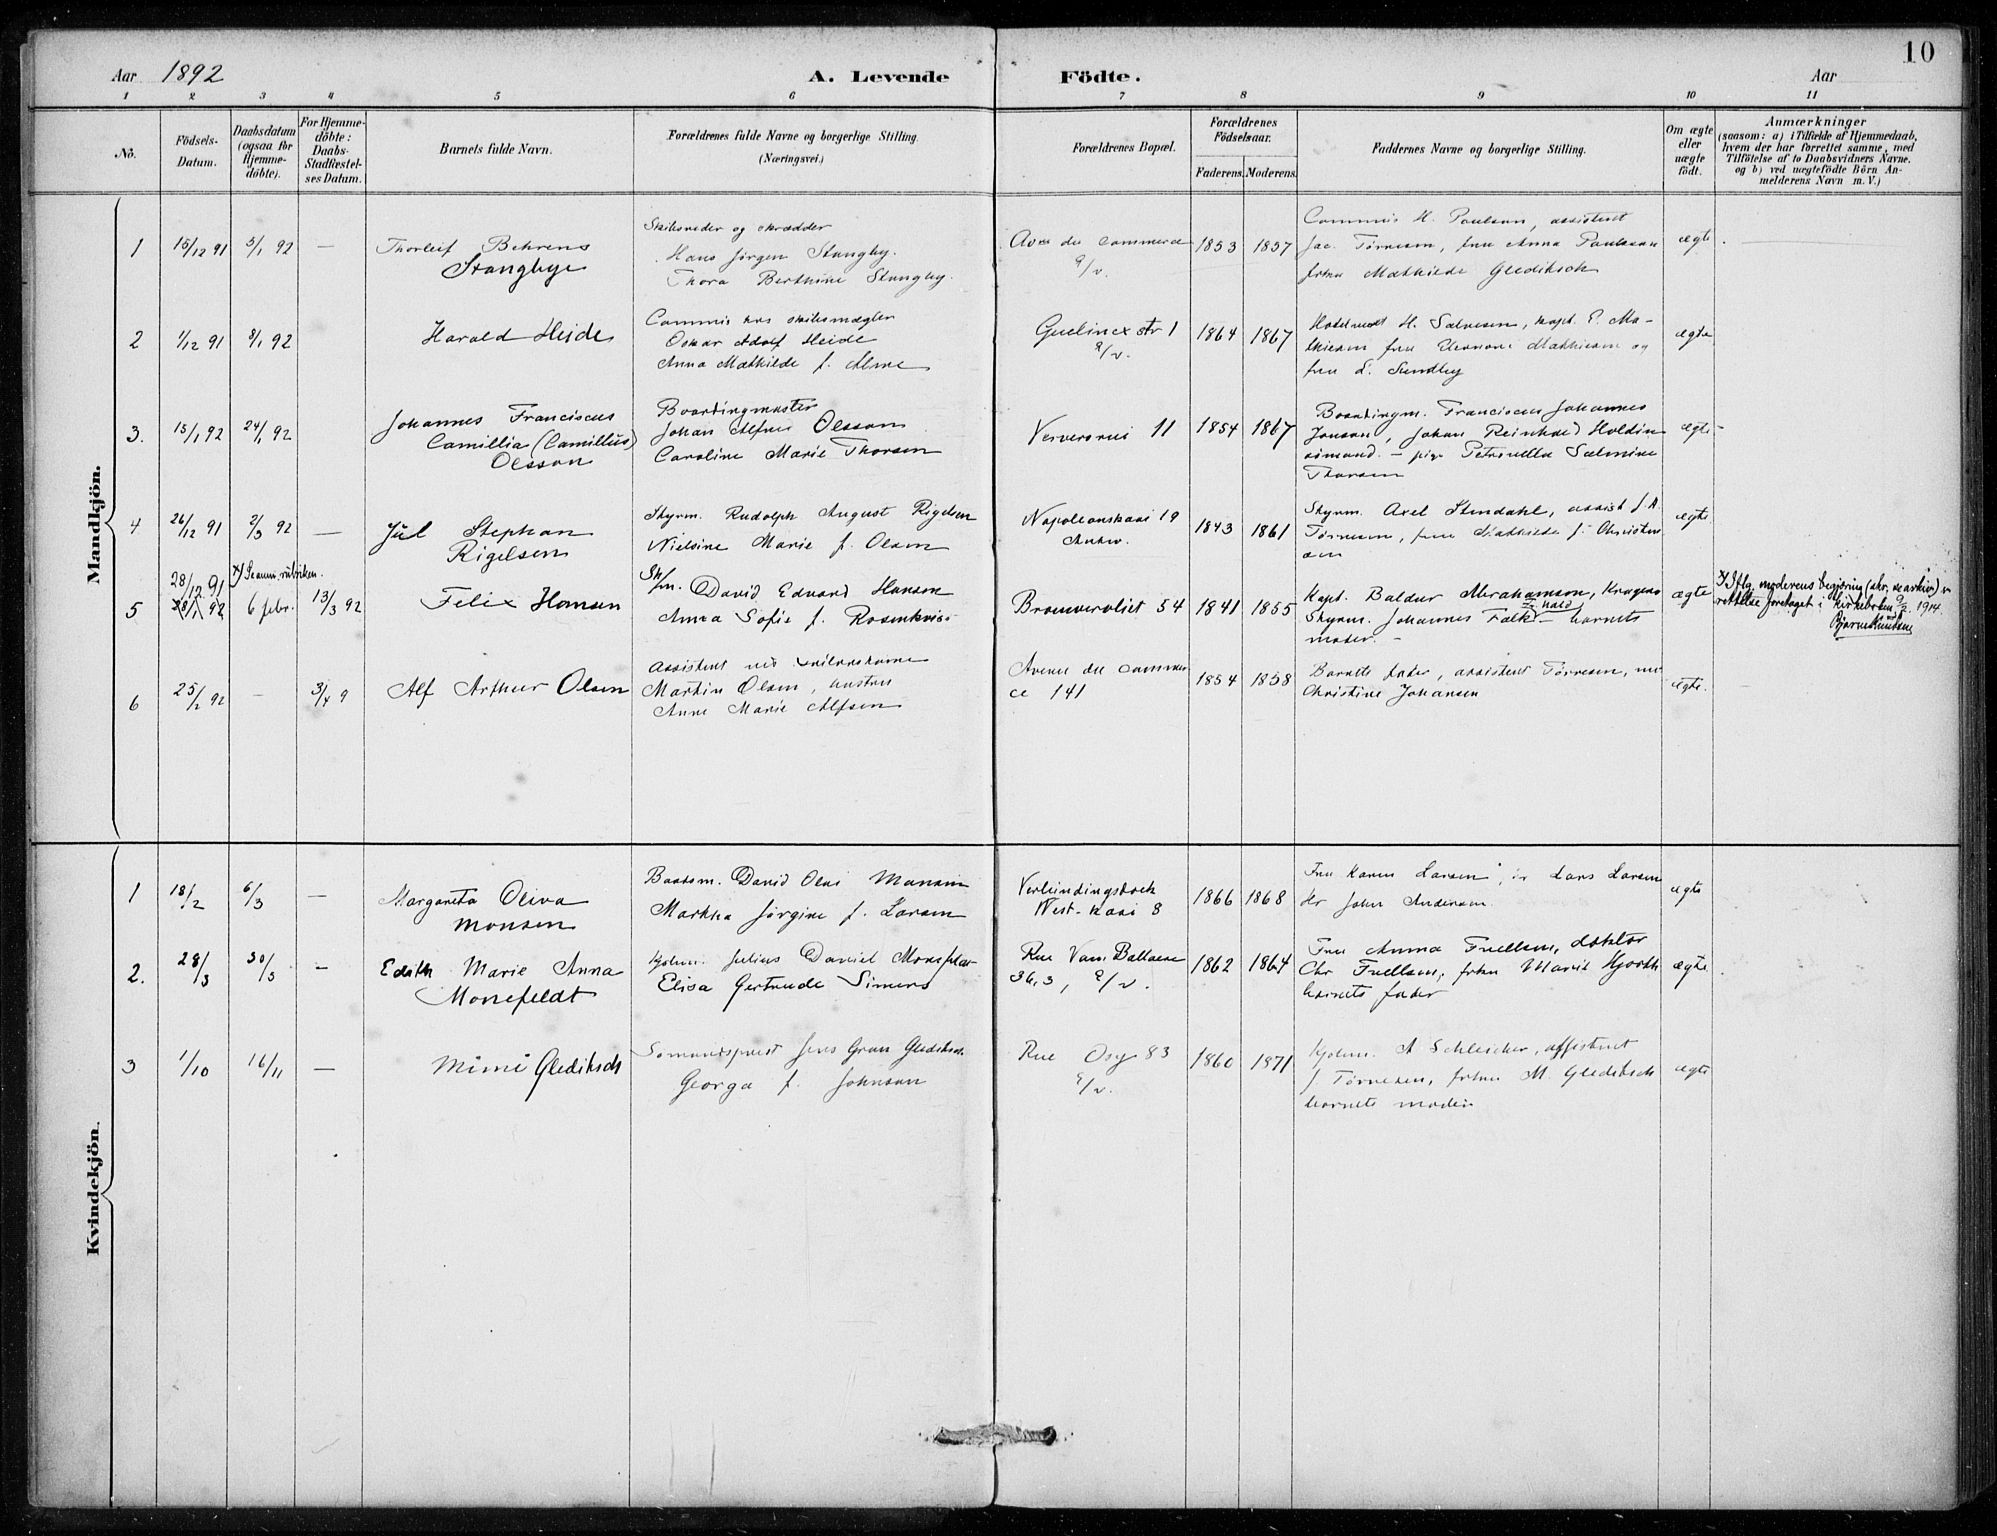 10
Aar 1892
A. Levende Födte.
Aar
1 2 3 4 5 6 7 8 9 10 11
Nô.
Födsels-Datum.
Daabsdatum (ogsaa for Hjemme-döbte).
For Hjemme-döbte: Daabs-Stadfæstel-ses Datum.
Barnets fulde Navn.
Forældrenes fulde Navne og borgerlige Stilling.
(Næringsvei.)
Forældrenes Bopæl.
Forældrenes Födselsaar.
Faderens. Moderens.
Faddernes Navne og borgerlige Stilling.
Om ægte eller uægte födt.
Anmærkninger
(saasom: a) i Tilfælde af Hjemmedaab, hvem der har forrettet samme, med Tilföielse af to Daabsvidners Navne. og b) ved uægtefödte Börn An-melderens Navn m. V.)
Mandkjön.
1 15/12 91 3/1 92 —
Thorleif Behrens
Stangbye
og skrædder
Hans Jørgen Stangby.
Thora Berthine Stangby.
Aven du commerce
1853 1857
Commis H. Paulson, assistent
Jac. Tørresen, fru Anna Paulsson
frkn Mathilde Gleditsch
ægte
2 1/12 91 3/1 92
Harald Heide
Commis hos skibsmægler
Oskar Adolf Heide
Anna Mathilde f. Alme
Guelincx str 1
1864 1867
H. Salvesen, kapt. E. Ma-
thiesen fru Eleonore Mathiesen og
fru L. Sundby
ægte
3. 15/1 92 24/1 92
Johannes Franciscus
Camillia (Camillus)
Olsson
Boardingmaster
Johan Alfred Olsson
Caroline Marie Thorsen
Verversrui 11
1854 1867
Boardingm. Franciscus Johannes
Jonson, Johan Reinhard Holdin
sömand. — pige Petronella Salmine
Thorsen
ægte
4 26/12 91 2/3 92 —
Jul Stephan
Rigelsen
Styrm. Rudolph August Rigelsen
Nielsine Marie f. Olsen
Napoleonskaai 19
Antw.
1843 1861
Styrm. Axel Stendahl, assist J. A.
Tørresen, frue Mathilde f. Christen
sen
ægte
28/12 91 x) Se anm. rubriken.
5 28/1 92 6 febr. 13/3 92
Felix Hansen
David Edvard Hansen
Anna Sofie f. Rosenkvist
Brouwersvliet 54
1841 1855
Kapt. Baldur Abrahamson, Kragerø
Styrm. Johannes Falk — barnets
moder. —
ægte
x) Iflg. moderens begjæring (skr. se arkiv) er
rettelse foretaget i kirkeboken 9/2 1914.
Bjarne Knudsen
6 25/2 92 — 3/4 9
Alf Arthur Olsen
Assistent ved
Martin Olsen, hustru
Anne Marie Alfsen
Avenu du commer
ce 141
1854 1858
Barnets fader, assistent Tørresen,
Christine Johansen
ægte.
Kvindekjön.
1 18/2 6/3 —
Margareta Oliva
Monsen
Baadsm. David Olai Monsen
Martha Jørgine f. Larsen
Verbindingsdock
West-kaai 8
1866 1868
Fru Karen Larsen, Lars Larsen
Hr John Andersen.
ægte
2. 28/3 30/3 —
Edith Marie Anna
Monefeldt
Kjøbm. Julius Daniel
Elisa Gertrude Simers
Rue Van Ballaere
36,3,
1862 1864
Fru Anna Fuellsen, doktor
Chr Fuellsen, frkn Marie Hjorth
barnets fader
ægte
3 1/10 16/11 —
Mimi Gleditsch
Sømandsprest Jens Gran Gleditsch
Georga f. Johnson
Rue Osy 83
1860 1871
Kjøbm. A Schleicher, assistent
J Tørresen, frkn M. Gleditsch
barnets moder
ægte